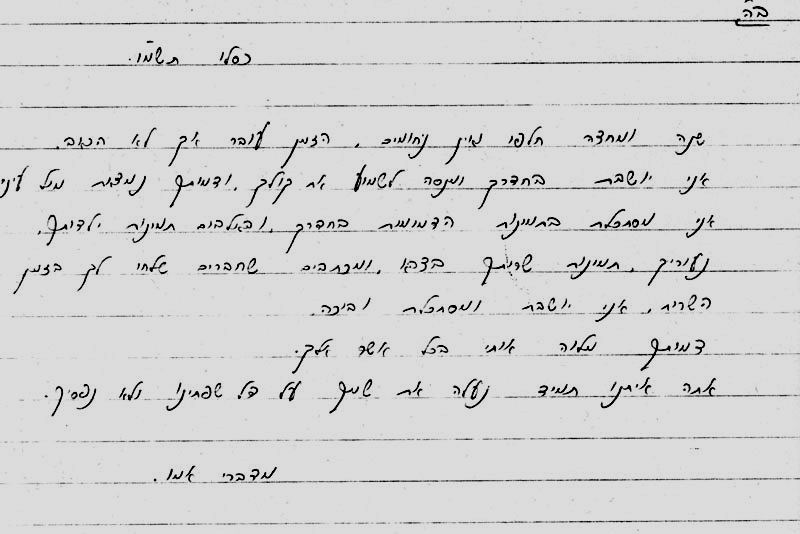 ב"ה
כסלו תשמ"ו.
שנה ומחצה חלפו ואין ניחומים. הזמן עובר אך לא הכאב.
אני יושבת בחדרך ומנסה לשמוע את קולך. ודמותך נמצאת מול עיני
אני מסתכלת בתמונות הדמומות בחדרך, ובאלבום תמונות ילדותך,
נעוריך, תמונות שרותך בצהל, ומכתבים שחברים שלחו לך בזמן
השרות. אני יושבת ומסתכלת ובוכה.
דמותך מלווה אותי בכל אשר אלך.
אתה איתנו תמיד נעלה את שמך על כל שפתינו ולא נפסיק.
מדברי אמו.